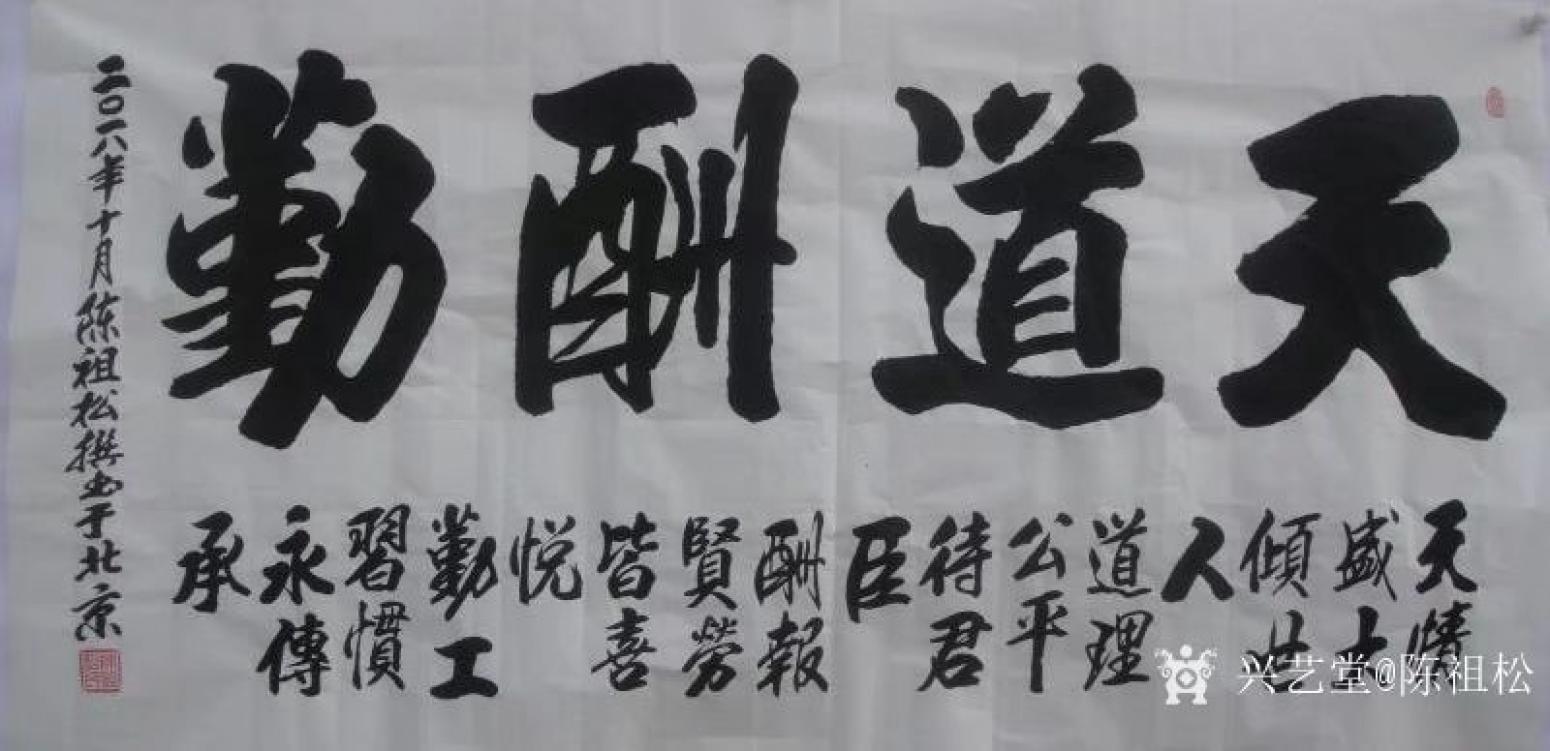 天道酬勤
天情
盛
傾世
人
道理
公平
待君
臣
酬報
賢勞
皆喜
悦
勤工
習慣
永傳
承
二〇一八年十月陈祖松撰书于北京
兴艺堂@陈祖松